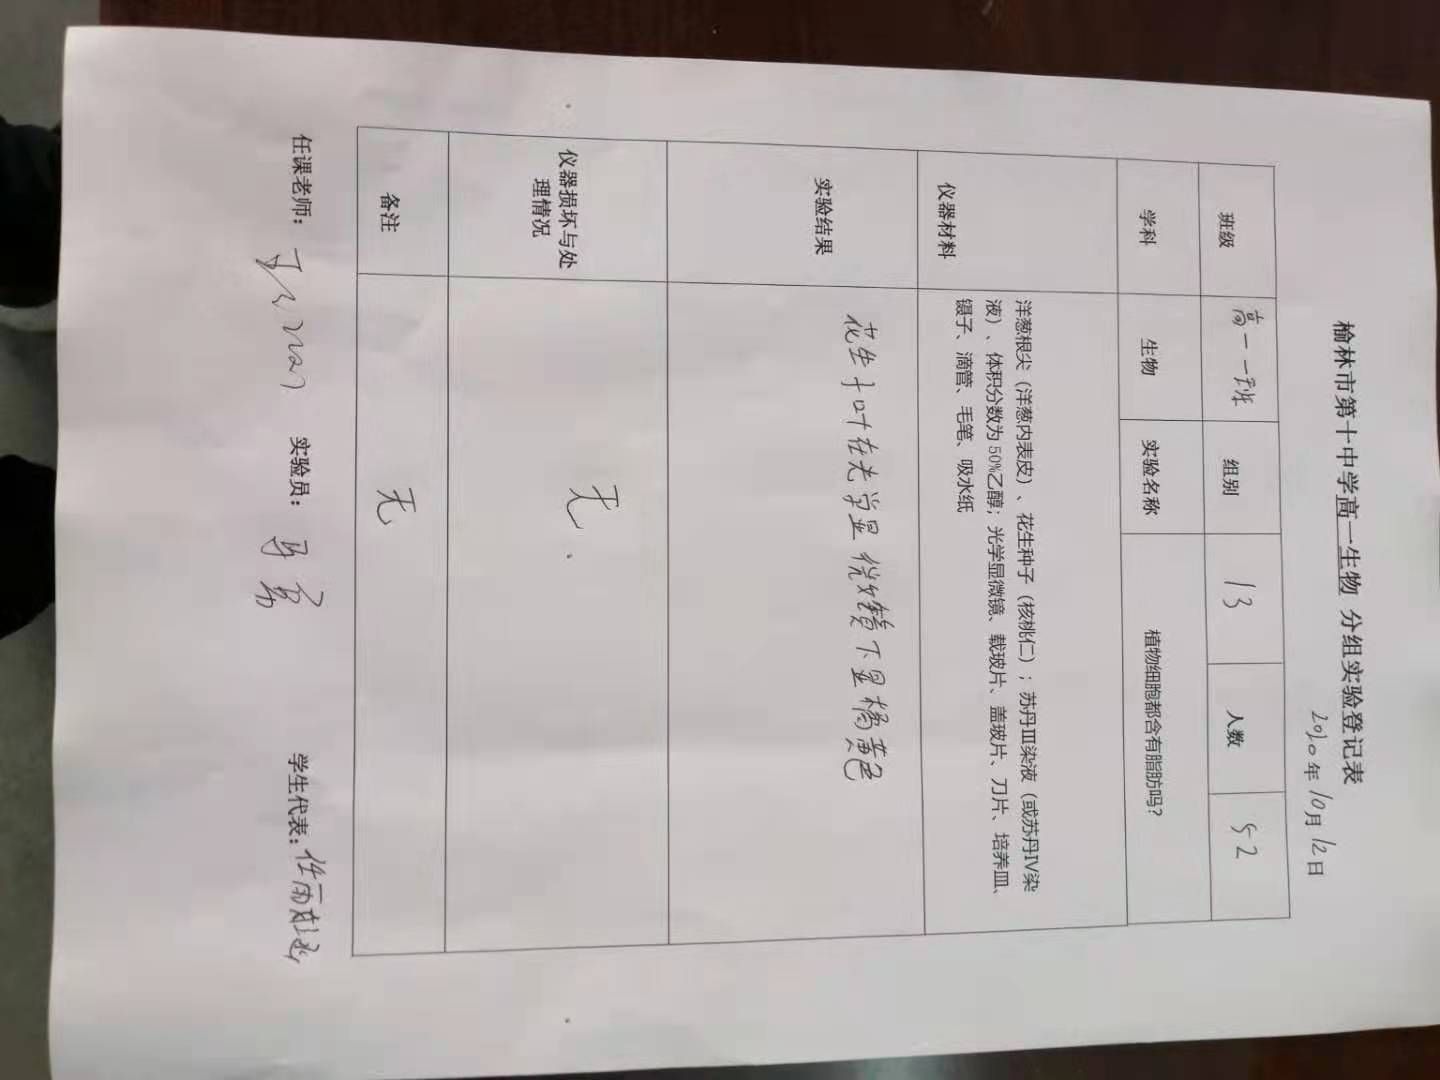 榆林市第十中学高一生物 分组实验登记表
2020年10月12日
班级 高一一班 组别 13 人数 52
学科 生物 实验名称 植物细胞都含有脂肪吗?
仪器材料
洋葱根尖（洋葱内表皮）、花生种子（核桃仁）；苏丹Ⅲ染液（或苏丹Ⅳ染
液）、体积分数为50%乙醇；光学显微镜、载玻片、盖玻片、刀片、培养皿、
镊子、滴管、毛笔、吸水纸
实验结果
花生子叶在光学显微镜下显橘黄色
仪器损坏与处
理情况
无.
备注 无
任课老师： 实验员： 学生代表：任雨